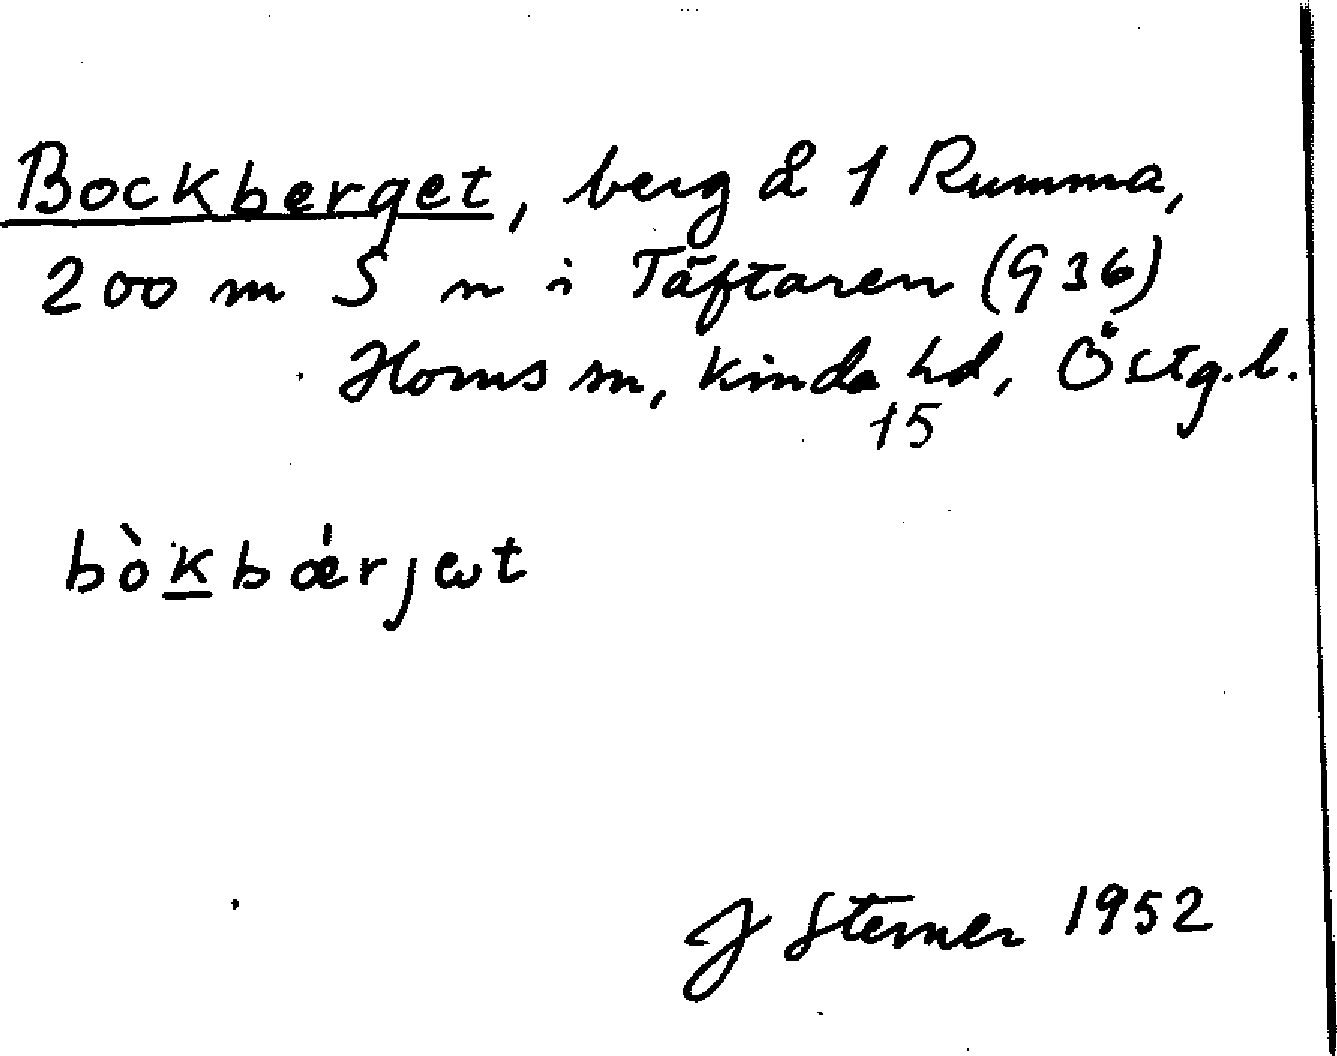 Bockberget, berg å 1 Rumma,
200 m S n i Täftaren (936)
Horns sn, Kinda hd, Östg.l.
15
bòkbǽrjɷt
J Sterner 1952